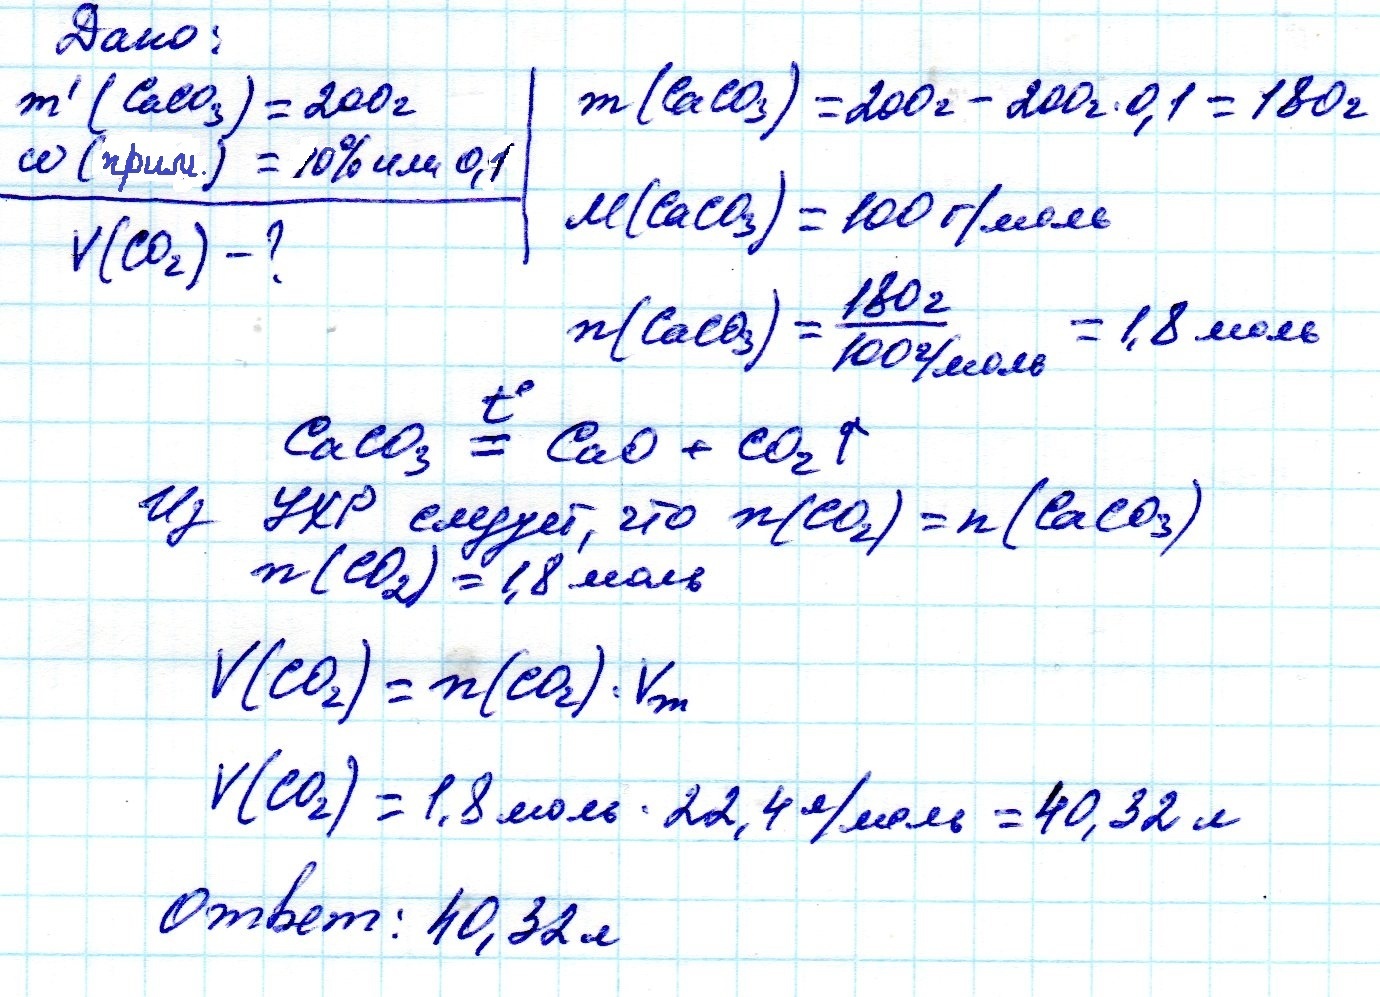 Дано:
m'(CaCO₃) = 200г
ω(прим.) = 10% или 0,1
V(CO₂) - ?
m(CaCO₃) = 200г - 200г·0,1 = 180г
M(CaCO₃) = 100 г/моль
n(CaCO₃) = 180г / 100г/моль = 1,8 моль
CaCO₃ t° = CaO + CO₂↑
Из УХР следует, что n(CO₂) = n(CaCO₃)
n(CO₂) = 1,8 моль
V(CO₂) = n(CO₂)·Vm
V(CO₂) = 1,8 моль · 22,4 л/моль = 40,32 л
Ответ: 40,32 л